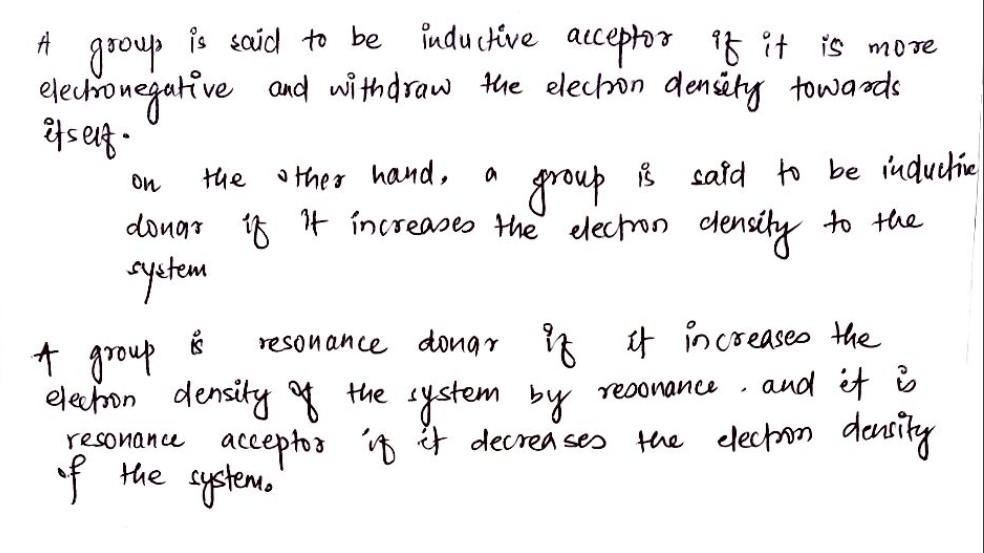 A group is said to be inductive acceptor if it is more
electronegative and withdraw the electron density towards
itself.
on the other hand, a group is said to be inductive
donar if it increases the electron density to the
system
A group is resonance donar if it increases the
electron density of the system by resonance. and it is
resonance acceptor if it decreases the electron density
of the system.